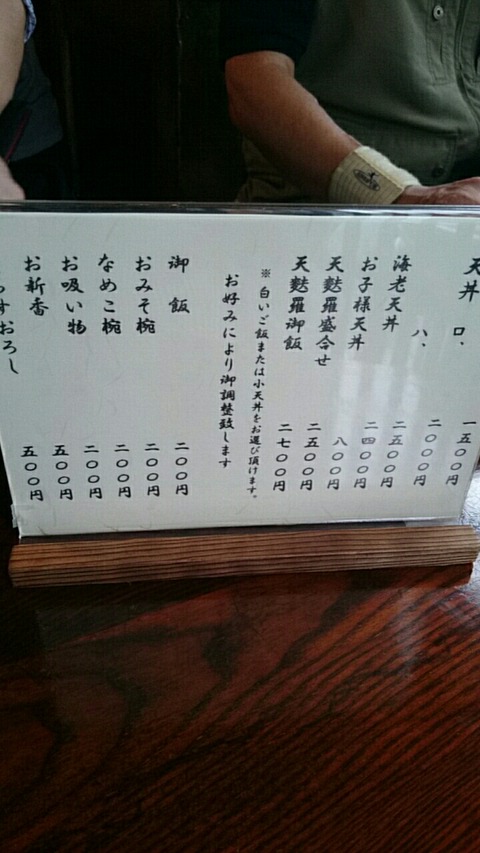 一五〇〇円
天丼 ロ、 二〇〇〇円
ハ、 二五〇〇円
海老天丼 二四〇〇円
お子様天丼 八〇〇円
天麩羅盛合せ 二五〇〇円
天麩羅御飯 二七〇〇円
※白いご飯または小天丼をお選び頂けます。
お好みにより御調整致します
御飯 二〇〇円
おみそ椀 二〇〇円
なめこ椀 二〇〇円
お吸い物 二〇〇円
お新香 五〇〇円
らすおろし 五〇〇円